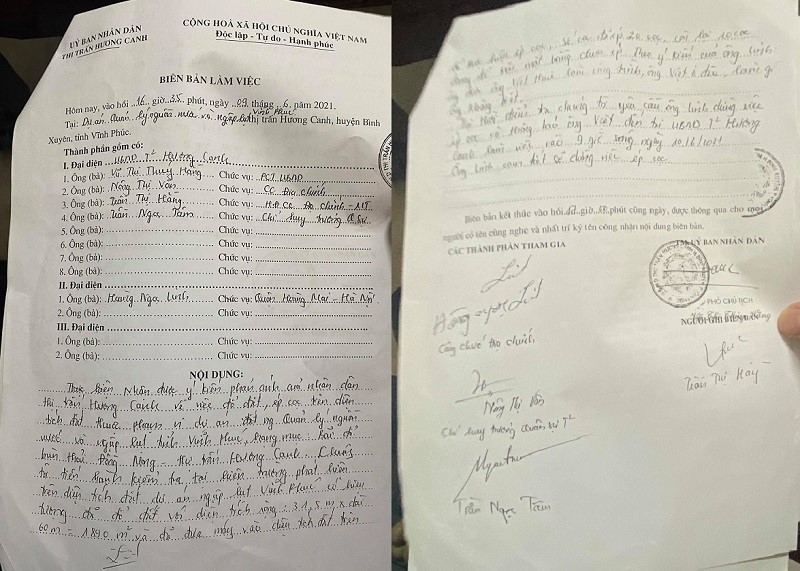 UỶ BAN NHÂN DÂN
THỊ TRẤN HƯƠNG CANH
CỘNG HOÀ XÃ HỘI CHỦ NGHĨA VIỆT NAM
Độc lập - Tự do - Hạnh phúc
BIÊN BẢN LÀM VIỆC
Hôm nay, vào hồi 16 giờ 35 phút, ngày 09 tháng 6 năm 2021.
Vĩnh Phúc
Tại: Dự án Quản lý nguồn nước và ngập lụt thị trấn Hương Canh, huyện Bình
Xuyên, tỉnh Vĩnh Phúc.
Thành phần gồm có:
I. Đại diện UBND T2 Hương Canh
1. Ông (bà): Vũ Thị Thuý Hằng Chức vụ: PCT UBND
2. Ông (bà): Nông Thị Vân Chức vụ: CC Địa chính
3. Ông (bà): Trần Thị Hằng Chức vụ: CC Địa chính - MT
4. Ông (bà): Trần Ngọc Tâm Chức vụ: Chỉ huy trưởng QSự
5. Ông (bà): Chức vụ:
6. Ông (bà): Chức vụ:
7. Ông (bà): Chức vụ:
8. Ông (bà): Chức vụ:
II. Đại diện
1. Ông (bà): Hoàng Ngọc Linh Chức vụ: Quận Hoàng Mai - Hà Nội
2. Ông (bà): Chức vụ:
III. Đại diện
1. Ông (bà): Chức vụ:
2. Ông (bà): Chức vụ:
NỘI DUNG:
nhận được ý kiến phản ánh của nhân dân
thị trấn Hương Canh về việc đổ đất, ép cọc trên diện
tích đất thuộc phạm vi dự án Quản lý nguồn
nước và ngập lụt tỉnh Vĩnh Phúc, hạng mục Bãi đổ
bùn thải Đồng Nong - thị trấn Hương Canh. Chúng
tôi tiến hành kiểm tra tại hiện trường phát hiện
trên diện tích đất dự án ngập lụt Vĩnh Phúc có hiện
tượng đổ đất với diện tích rộng 31,5 m x dài
60m = 1890 m² và đã đưa máy vào diện tích đất trên
ép cọc, số cọc đã ép 20 cọc, còn lại 10 cọc
chưa ép. Theo ý kiến của ông Linh
ông Việt ở đâu, làm gì
ông không biết.
chúng tôi yêu cầu ông Linh dừng việc
ép cọc và thông báo ông Việt đến trụ UBND T2 Hương
Canh làm việc vào 9 giờ sáng ngày 10/6/2021
Ông Linh cam kết sẽ dừng việc ép cọc.
Biên bản kết thúc vào hồi giờ phút cùng ngày, được thông qua cho mọi
người có tên cùng nghe và nhất trí ký tên công nhận nội dung biên bản.
CÁC THÀNH PHẦN THAM GIA
TM. UỶ BAN NHÂN DÂN
PHÓ CHỦ TỊCH
Hoàng Ngọc Linh
NGƯỜI GHI BIÊN BẢN
Công chức địa chính
Trần Thị Hằng
Nông Thị Vân
Chỉ huy trưởng quân sự T2
Trần Ngọc Tâm